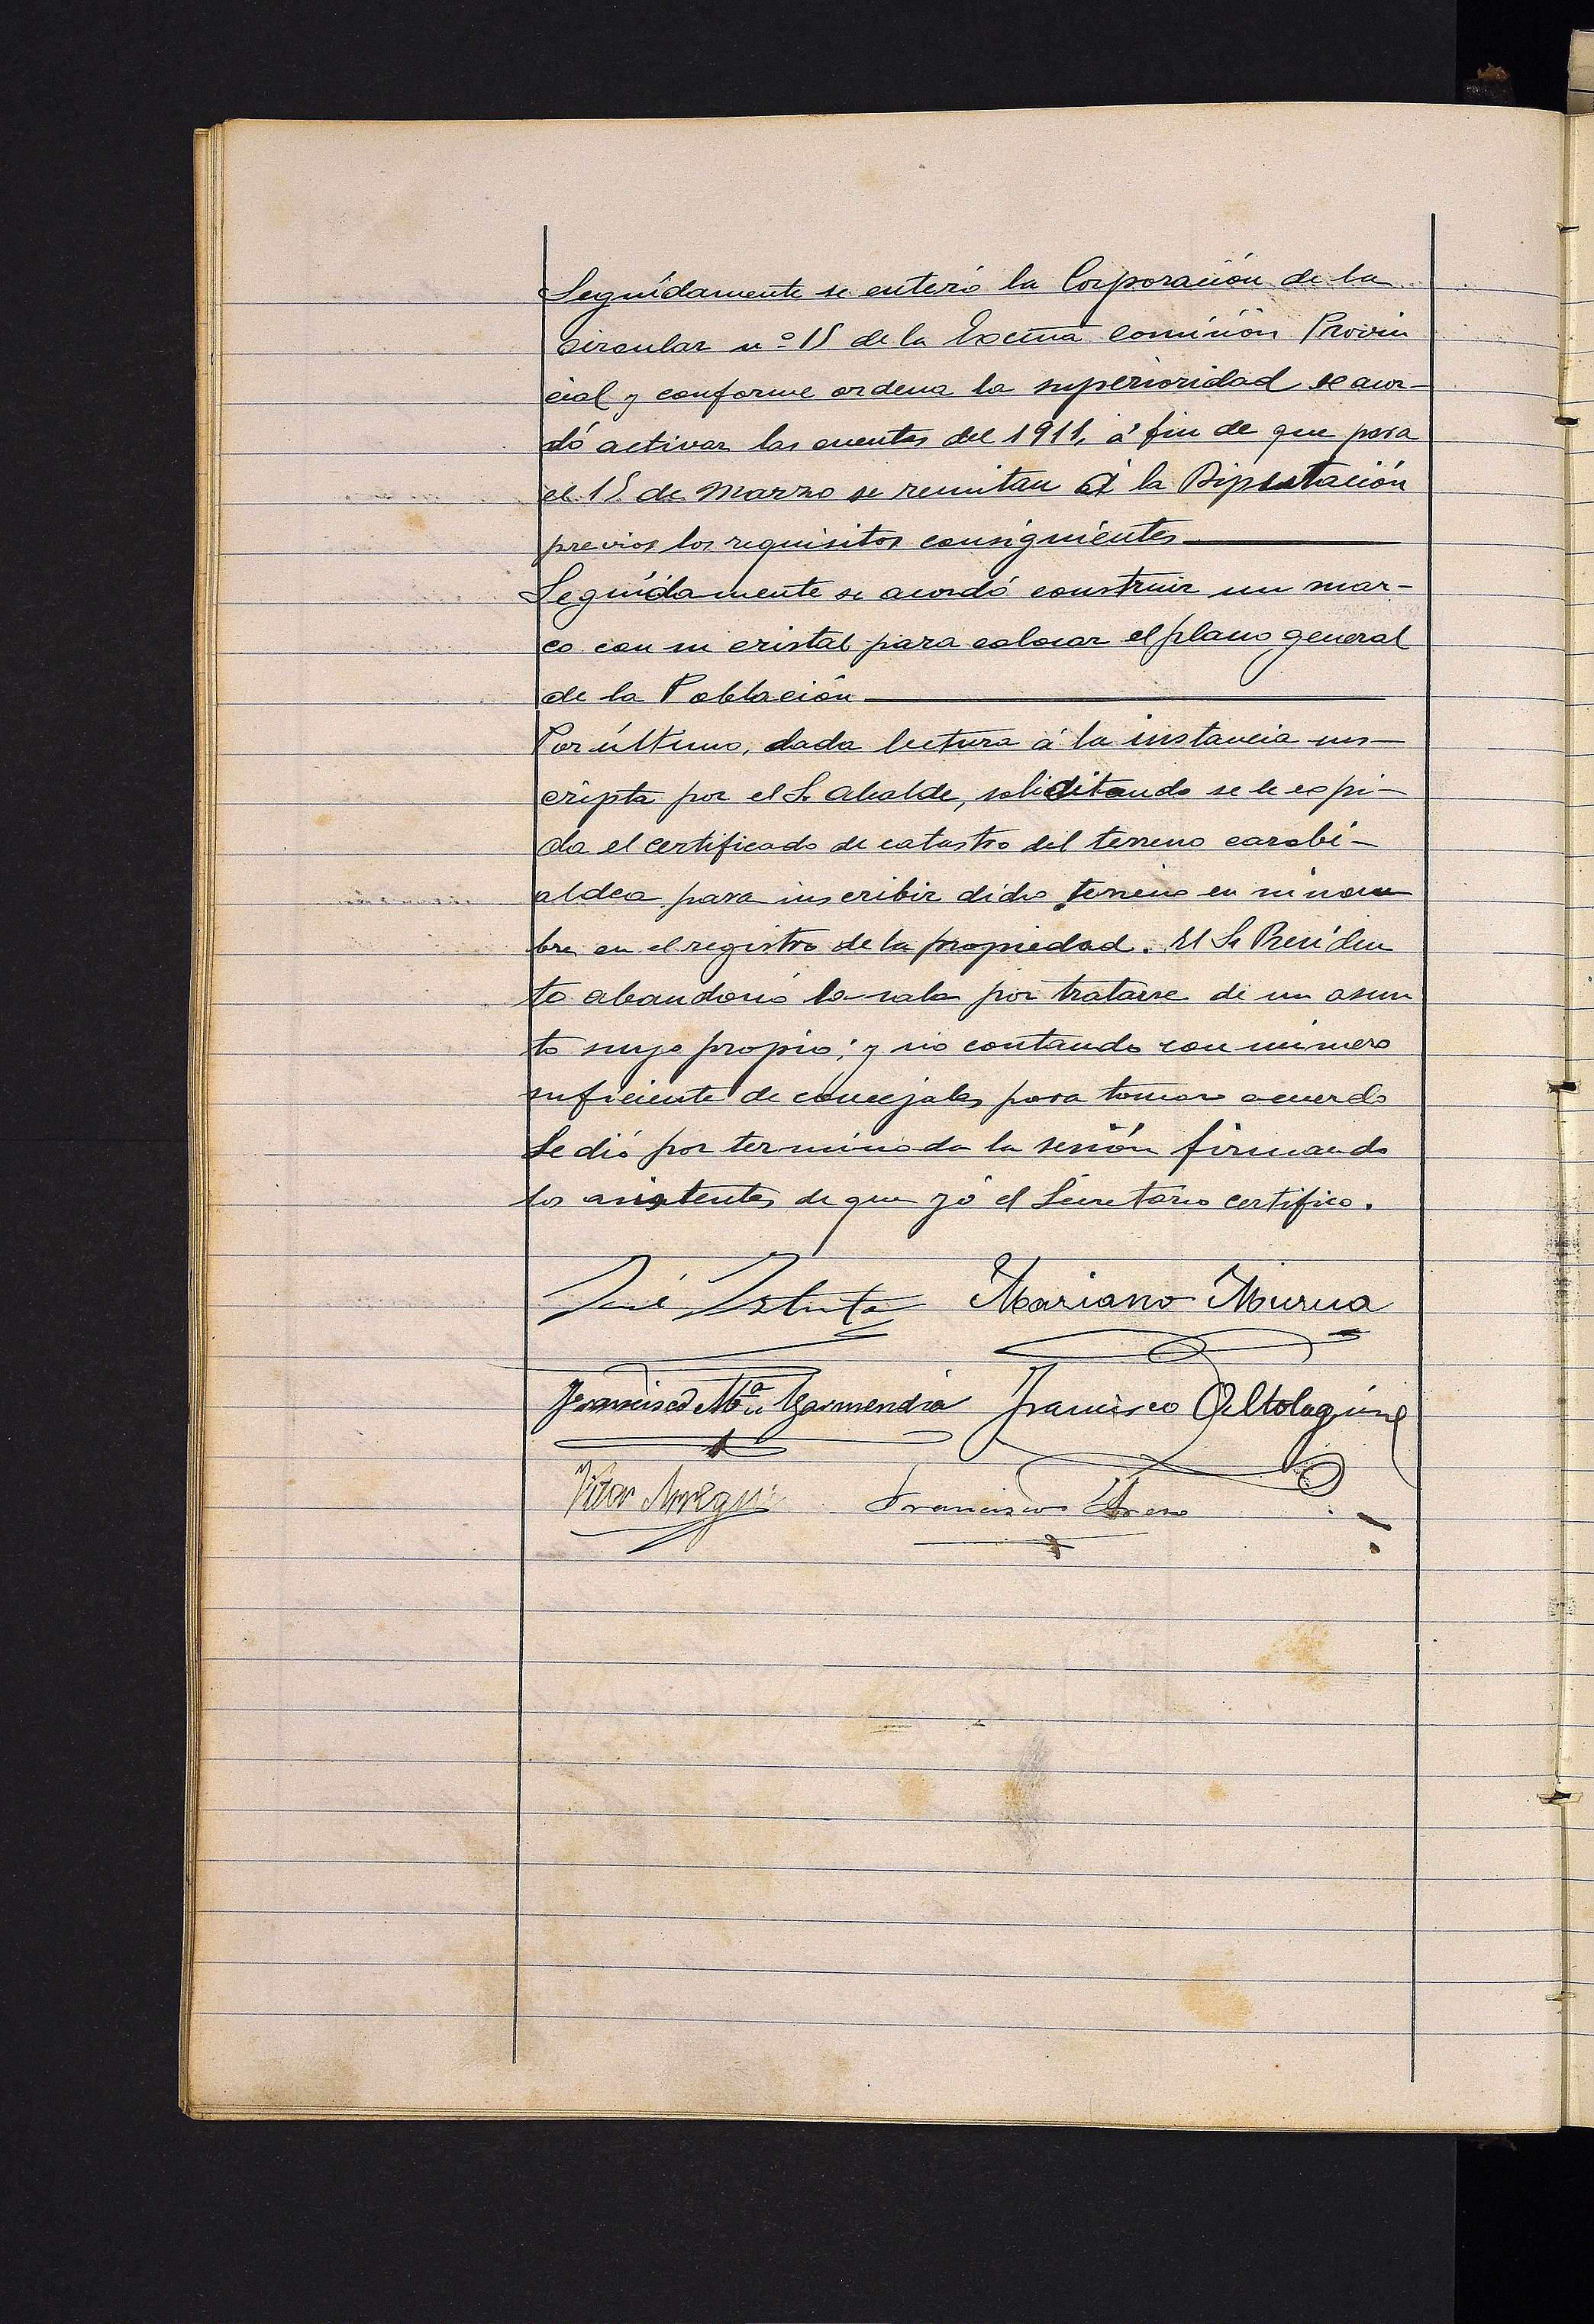 Seguidamente se enteró la Corporación de la
Circular nº 15 de la Excma Comisión Provin
cial y conforme ordena la superioridad se acor-
dó activar las cuentas del 1911, á fin de que para
el 15 de Marzo se remitan á la Diputación
previos los requisitos consiguientes
Seguidamente se acordó construir un mar-
co con su cristal para colocar el plano general
de la Población
Por último, dada lectura á la instancia sus-
cripta por el S. Alcalde, solicitando se le espi-
da el certificado de catastro del terreno carabi-
aldea para inscribir dicho terreno en su nom
bre en el registro de la propiedad. El Sr Presiden
te abandonó la sala por tratarse de un asun
to suyo propio; y no contando con número
suficiente de concejales para tomar acuerdo
Se dió por terminada la sesión firmando
los asistentes de que yó el Secretario certifico.
José Mariano Murua
Francisco Mª Garmendia Francisco Altolaguirre
Vitor Arregui Francisco